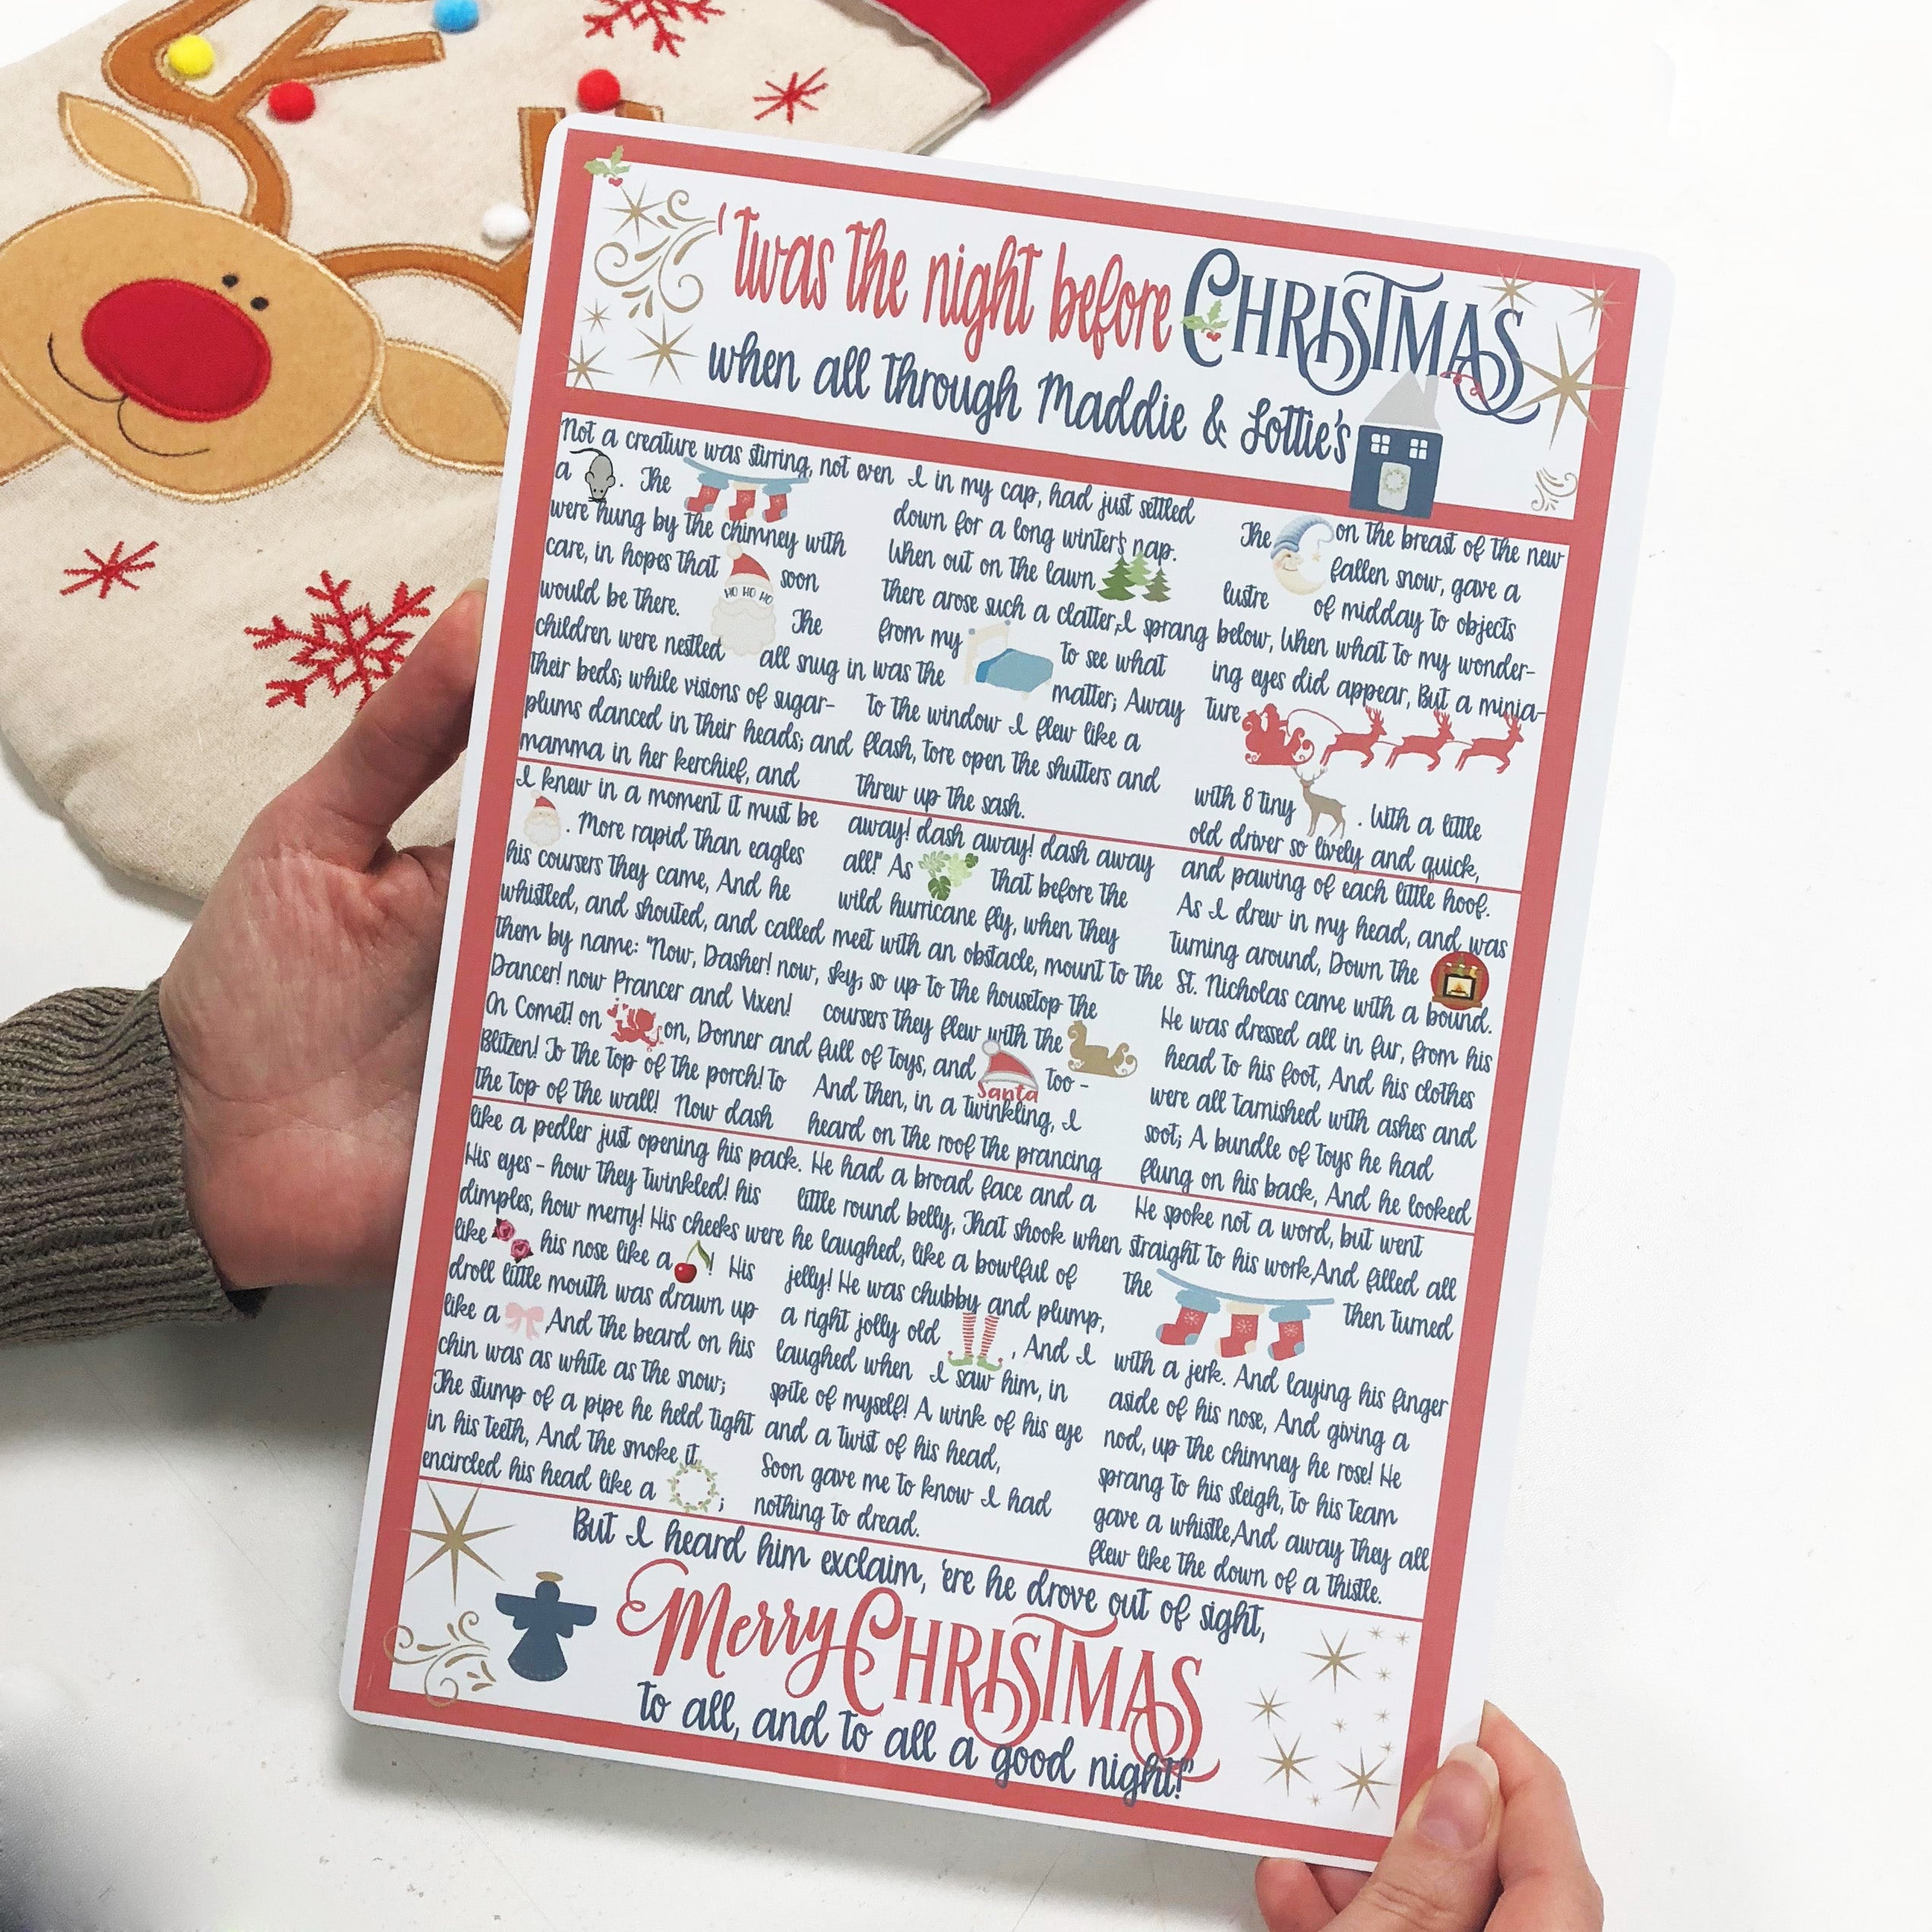 'twas the night before CHRISTMAS
when all through Maddie & Lottie's
Not a creature was stirring, not even
a . The
were hung by the chimney with
care, in hopes that
HO HO HO
soon
would be there. The
children were nestled all snug in
their beds; while visions of sugar-
plums danced in their heads; and
mamma in her kerchief, and
I in my cap, had just settled
down for a long winter's nap.
When out on the lawn
There arose such a clatter, I sprang
from my to see what
was the matter; Away
to the window I flew like a
flash, tore open the shutters and
threw up the sash.
The on the breast of the new
fallen snow, gave a
lustre of midday to objects
below, When what to my wonder-
ing eyes did appear, But a minia-
ture
with 8 tiny . With a little
old driver so lively and quick,
I knew in a moment it must be
. More rapid than eagles
his coursers they came, And he
whistled, and shouted, and called
them by name: "Now, Dasher! now,
Dancer! now Prancer and Vixen!
On, Comet! on on, Donner and
Blitzen! To the top of the porch! to
the top of the wall! Now dash
away! dash away! dash away
all!" As that before the
wild hurricane fly, when they
meet with an obstacle, mount to the
sky; so up to the housetop the
coursers they flew with the
full of toys, and
Santa
too -
And then, in a twinkling, I
heard on the roof the prancing
and pawing of each little hoof.
As I drew in my head, and was
turning around, Down the
St. Nicholas came with a bound.
He was dressed all in fur, from his
head to his foot, And his clothes
were all tarnished with ashes and
soot; A bundle of toys he had
flung on his back, And he looked
like a pedler just opening his pack.
His eyes - how they twinkled! his
dimples, how merry! His cheeks were
like his nose like a ! His
droll little mouth was drawn up
like a And the beard on his
chin was as white as the snow;
The stump of a pipe he held tight
in his teeth, And the smoke it
encircled his head like a ;
He had a broad face and a
little round belly, That shook when
he laughed, like a bowlful of
jelly! He was chubby and plump,
a right jolly old , And I
laughed when I saw him, in
spite of myself! A wink of his eye
and a twist of his head,
Soon gave me to know I had
nothing to dread.
He spoke not a word, but went
straight to his work, And filled all
the Then turned
with a jerk. And laying his finger
aside of his nose, And giving a
nod, up the chimney he rose! He
sprang to his sleigh, to his team
gave a whistle, And away they all
flew like the down of a thistle.
But I heard him exclaim, 'ere he drove out of sight,
Merry CHRISTMAS
to all, and to all a good night!"